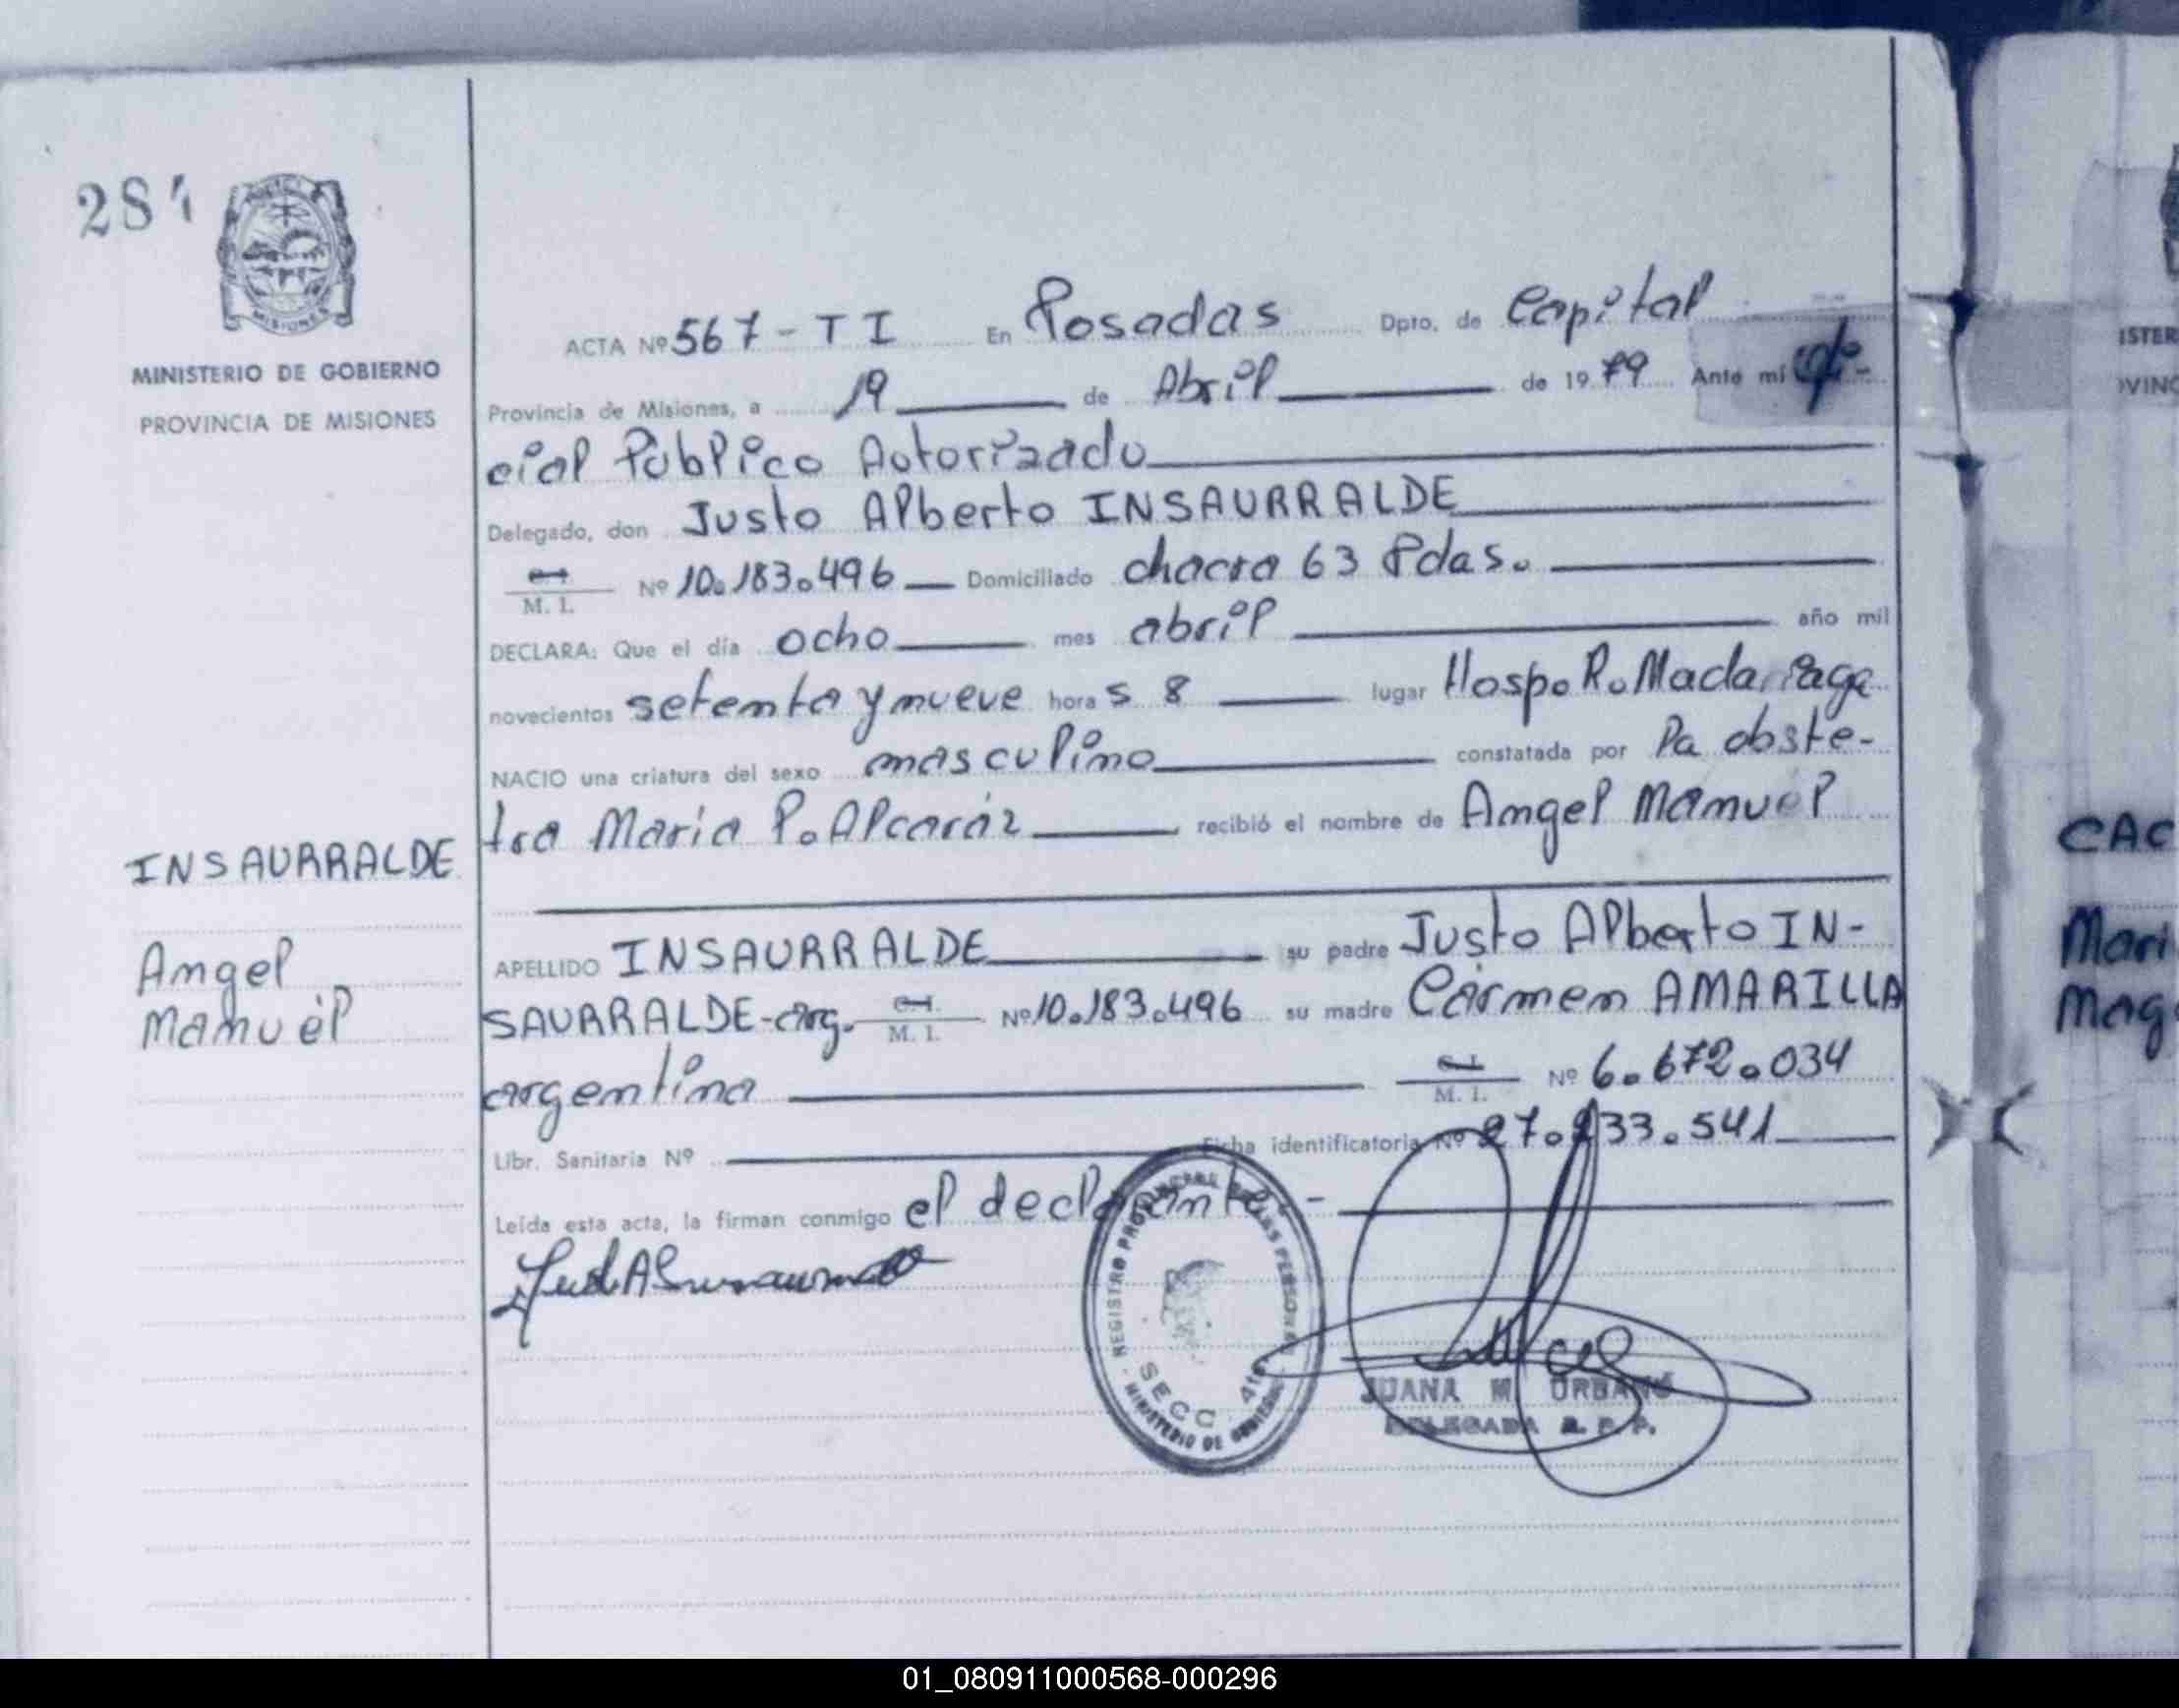 284
MISIONES
MINISTERIO DE GOBIERNO
PROVINCIA DE MISIONES
INSAURRALDE
Angel
Manuel
ACTA Nº 567-TI En Posadas Dpto. de Capital
Provincia de Misiones, a 19 de Abril de 1979 Ante mí ofi-
cial Público Autorizado
Delegado, don Justo Alberto INSAURRALDE
C.I. M. I. Nº 10.183.496 Domiciliado chacra 63 Pdas.
DECLARA: Que el día ocho mes abril año mil
novecientos setenta y nueve hora s 8 lugar Hosp. R. Madariaga
NACIO una criatura del sexo masculino constatada por la obste-
tra María P. Alcaráz recibió el nombre de Angel Manuel
APELLIDO INSAURRALDE su padre Justo Alberto IN-
SAURRALDE-arg. C.I. M. I. Nº 10.183.496 su madre Cármen AMARILLA
argentina C.I. M. I. Nº 6.672.034
Libr. Sanitaria Nº Ficha identificatoria Nº 27.233.541
Leída esta acta, la firman conmigo el declarante.-
REGISTRO PROVINCIAL DE LAS PERSONAS
SECC. 4ta
MINISTERIO DE GOBIERNO
JUANA M. URBANO
DELEGADA R. P. P.
ISTER
OVINC
CAC
Mari
Mag
01_080911000568-000296